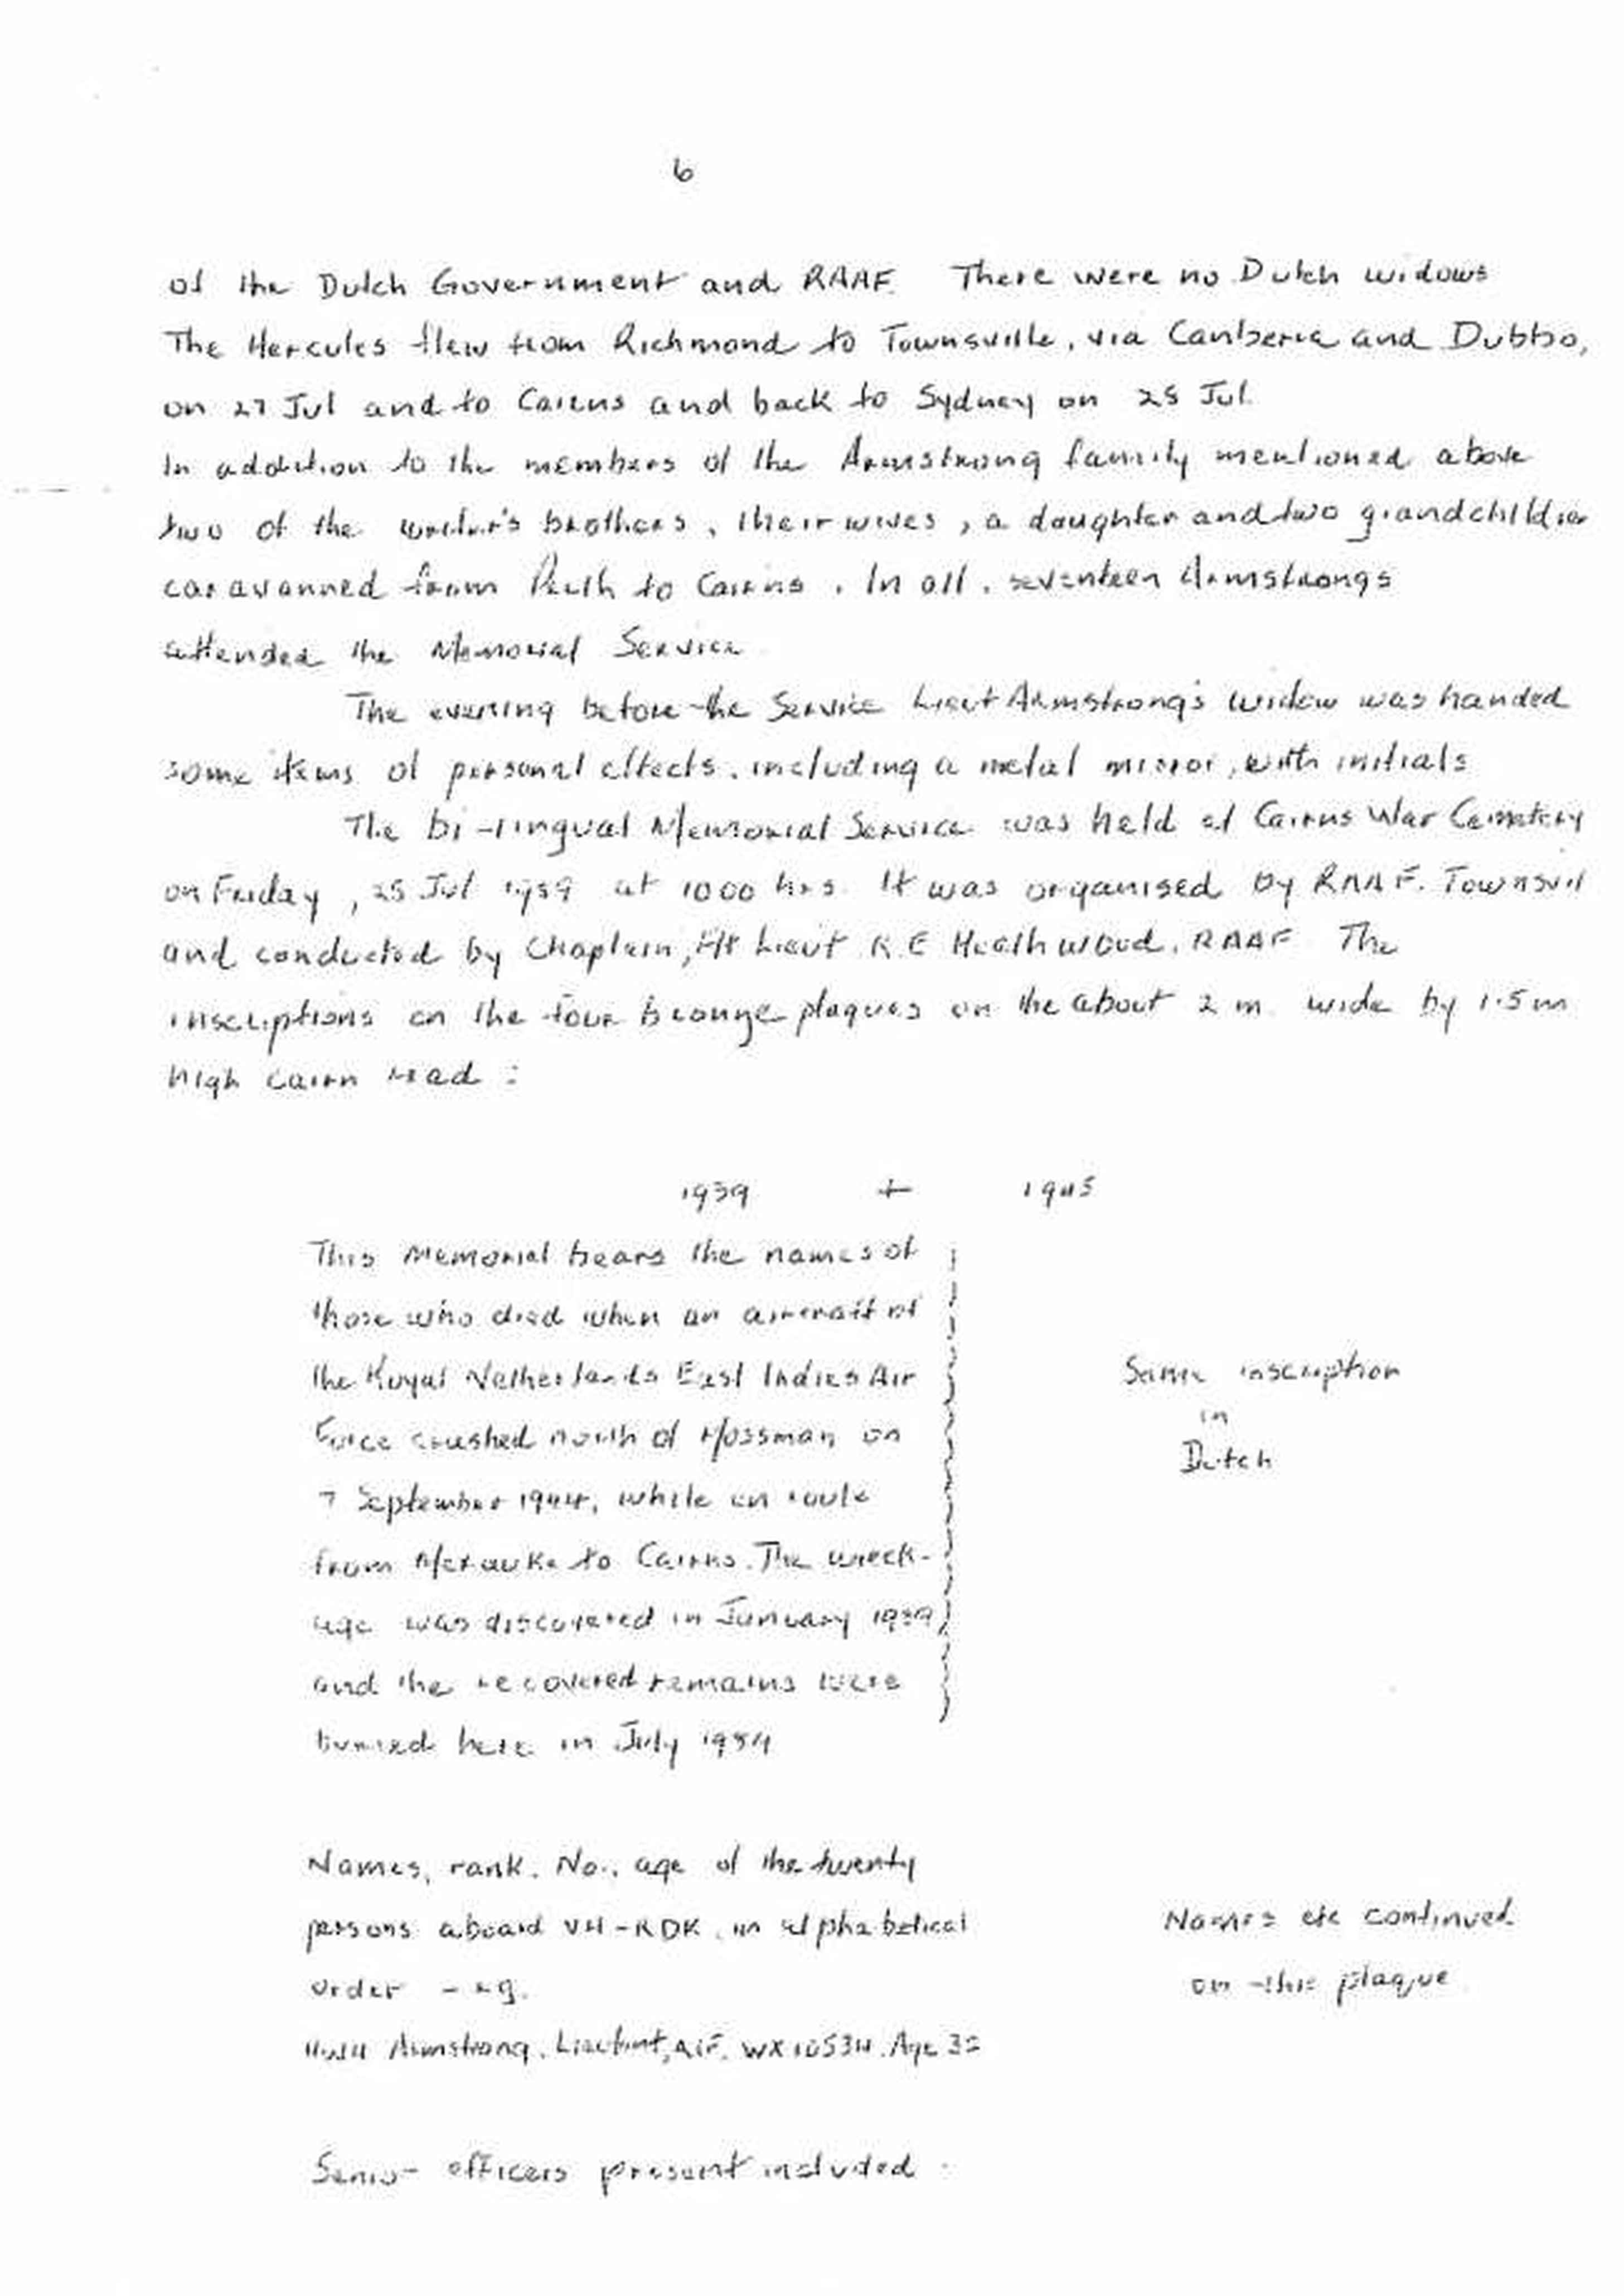 6
of the Dutch Government and RAAF. There were no Dutch widows
The Hercules flew from Richmond to Townsville, via Canberra and Dubbo,
on 27 Jul and to Cairns and back to Sydney on 28 Jul.
In addition to the members of the Armstrong family mentioned above
two of the writer's brothers, their wives, a daughter and two grandchildren
caravanned from Perth to Cairns. In all, seventeen Armstrongs
attended the Memorial Service
The evening before the Service Lieut Armstrong's widow was handed
some items of personal effects, including a metal mirror, with initials
The bi-lingual Memorial Service was held at Cairns War Cemetery
on Friday, 28 Jul 1989 at 1000 hrs. It was organised by RAAF. Townsvil
and conducted by Chaplain, Flt Lieut R.E Heathwood, RAAF. The
inscriptions on the four bronze plaques on the about 2 m. wide by 1.5m
high cairn read:
1939 + 1945
This Memorial bears the names of
those who died when an aircraft of
the Royal Netherlands East Indies Air
Force crashed north of Mossman on
7 September 1944, while en route
from Merauke to Cairns. The wreck-
age was discovered in January 1989,
and the recovered remains were
buried here in July 1989
Same inscription
in
Dutch
Names, rank, No., age of the twenty
persons aboard VH-RDK, in alphabetical
order - eg.
Armstrong, Lieutent, AIF. Age
Names etc continued
on this plaque
Senior officers present included